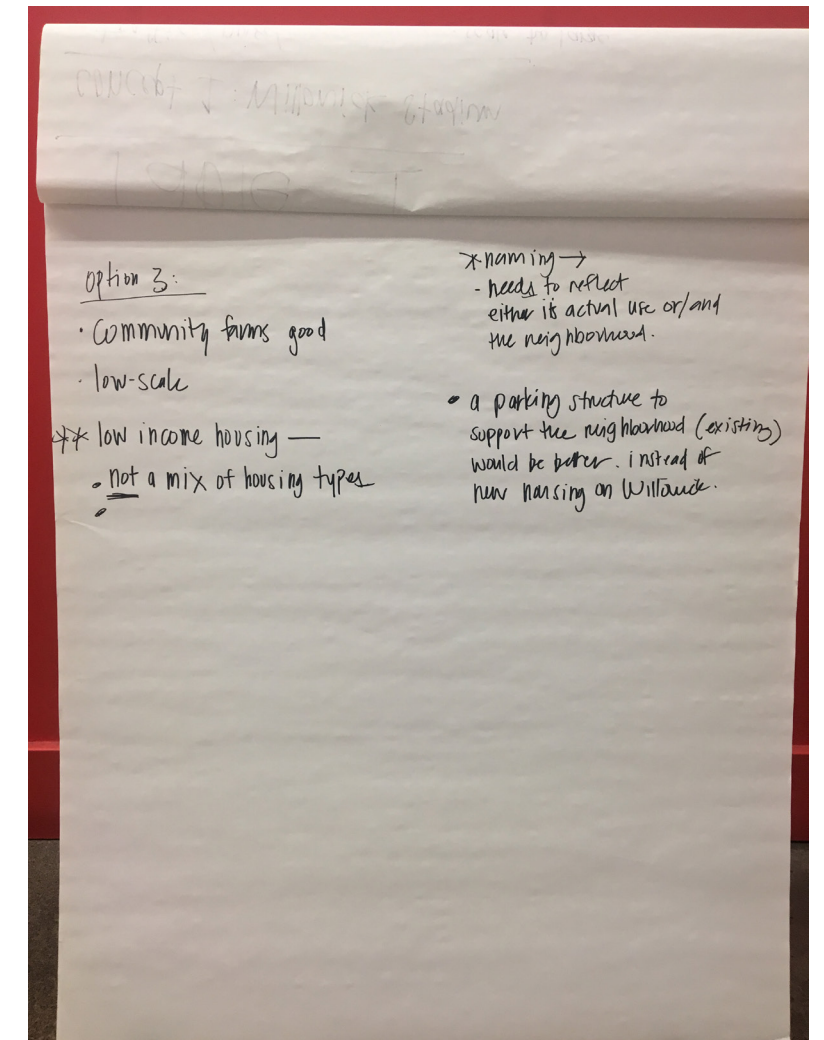 option 3:
· Community farms good
· low-scale
** low income housing —
· not a mix of housing types
·
*naming →
- needs to reflect
either its actual use or/and
the neighborhood.
· a parking structure to
support the neighborhood (existing)
would be better. instead of
new housing on Willowick.